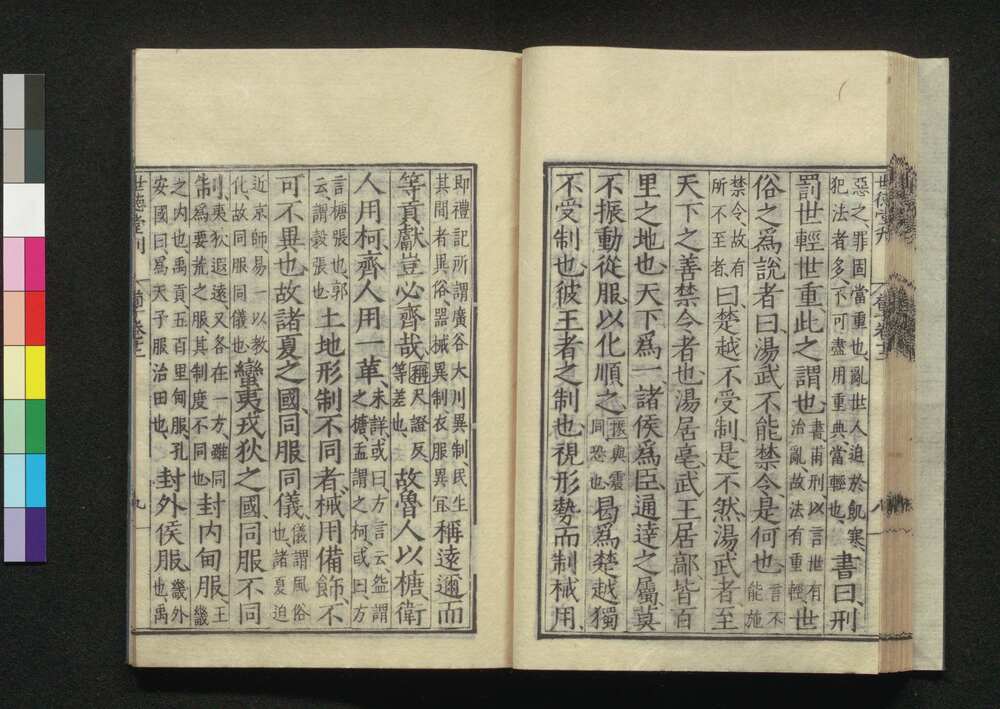 惡之罪固當重也亂世人迫於飢寒
犯法者多不可盡用重典當輕也書曰刑
罰世輕世重此之謂也書甫刑以言世有
治亂故法有重輕世
俗之爲說者曰湯武不能禁令是何也言不
能施
禁令故有
所不至者曰楚越不受制是不然湯武者至
天下之善禁令者也湯居亳武王居鄗皆百
里之地也天下爲一諸侯爲臣通達之屬莫
不振動從服以化順之振與震
同恐也曷爲楚越獨
不受制也彼王者之制也視形勢而制械用
即禮記所謂廣谷大川異制民生
其間者異俗器械異制衣服異宜稱遠邇而
等貢獻豈必齊哉稱尺證反
等差也故魯人以榶衛
人用柯齊人用一革未詳或曰方言云盌謂
之榶盂謂之柯或曰方
言榶張也郭
云謂穀張也土地形制不同者械用備飾不
可不異也故諸夏之國同服同儀儀謂風俗
也諸夏迫
近京師易一以教
化故同服同儀也蠻夷戎狄之國同服不同
制夷狄遐遠又各在一方雖同
爲要荒之服其制度不同也封內甸服王
畿
之內也禹貢五百里甸服孔
安國曰爲天子服治田也封外侯服畿外
也禹
世德堂刊
荀子卷十二
八
世德堂刊
荀子卷十二
九